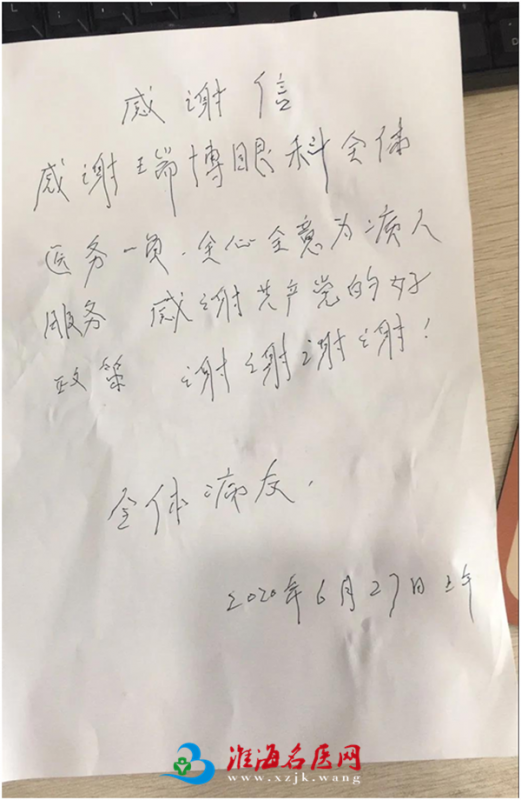 感谢信
感谢瑞博眼科全体
医务一员.全心全意为病人
服务 感谢共产党的好
政策 谢谢谢谢!
全体病友.
2020年6月27日上午
淮海名医网
www.xzjk.wang